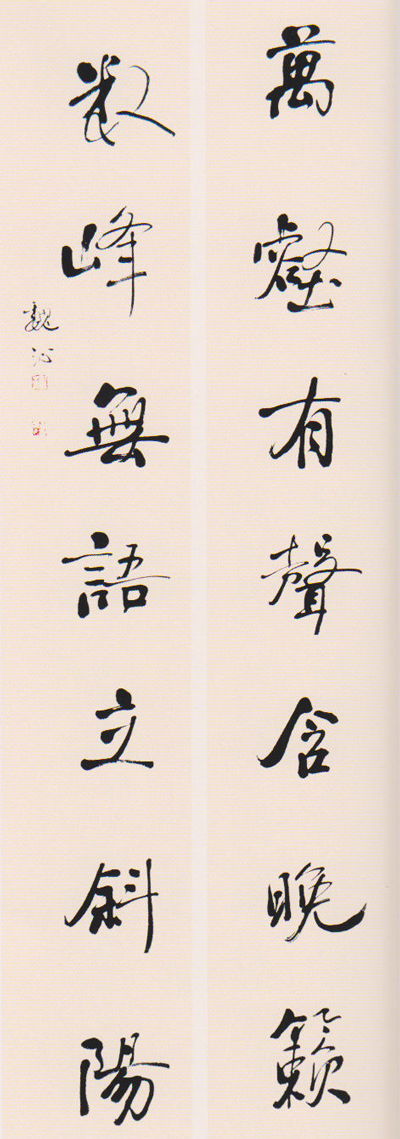 萬壑有聲含晚籟
數峰無語立斜陽
魏